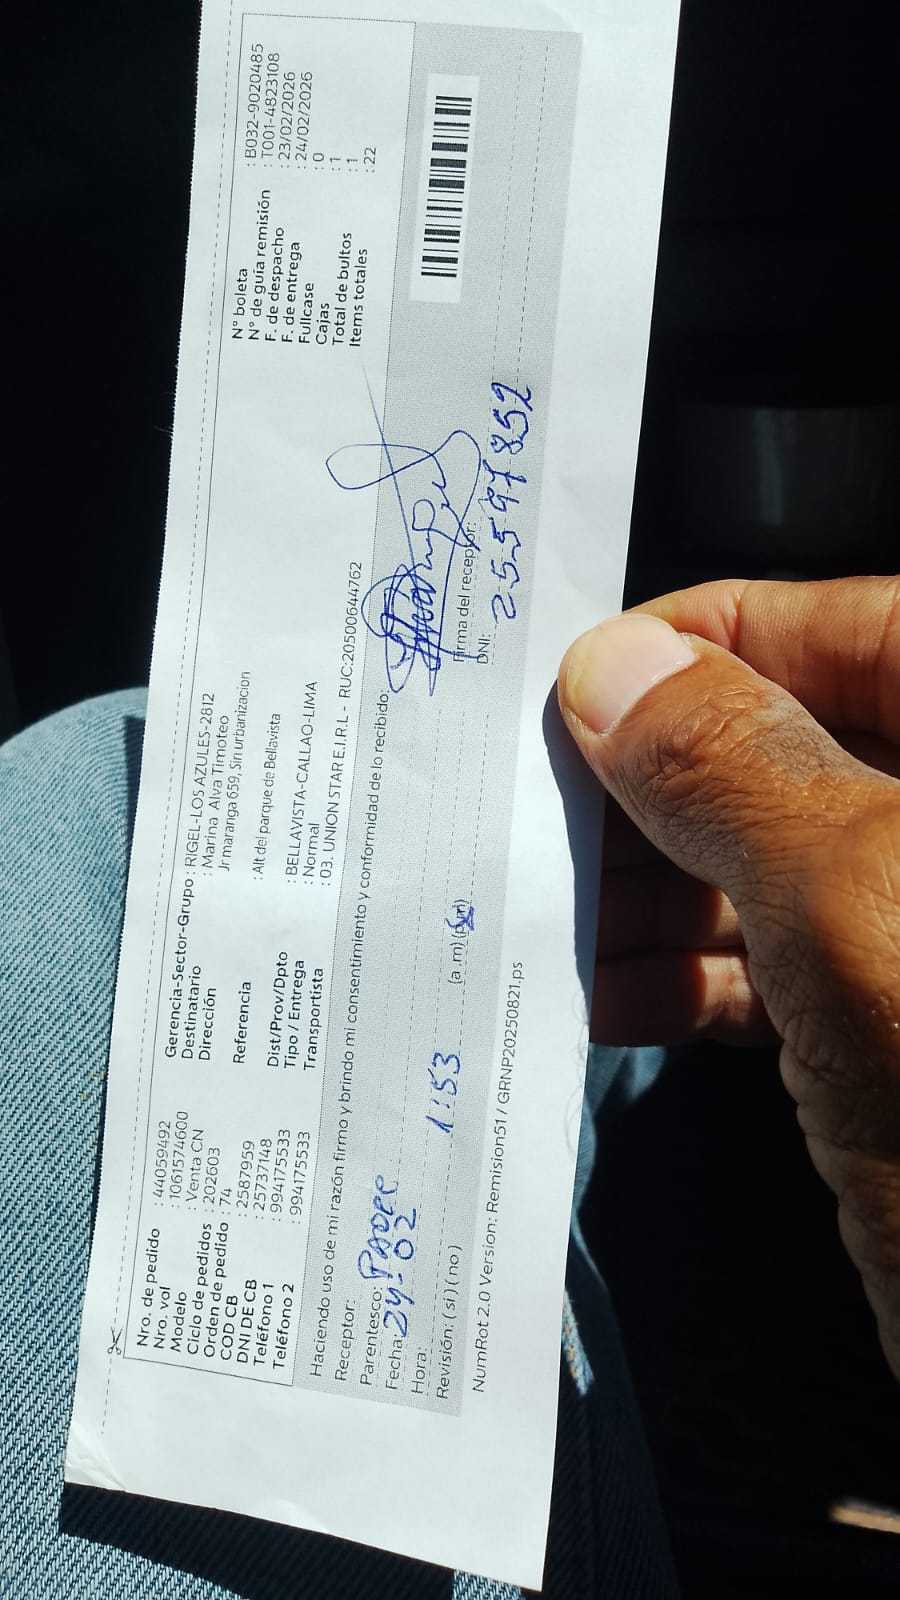 Nro. de pedido : 44059492
Nro. vol : 1061574600
Modelo : Venta CN
Ciclo de pedidos : 202603
Orden de pedido : 74
COD CB : 2587959
DNI DE CB : 25737148
Teléfono 1 : 994175533
Teléfono 2 : 994175533
Gerencia-Sector-Grupo : RIGEL-LOS AZULES-2812
Destinatario : Marina Alva Timoteo
Dirección Jr maranga 659, Sin urbanizacion
Referencia : Alt del parque de Bellavista
Dist/Prov/Dpto : BELLAVISTA-CALLAO-LIMA
Tipo / Entrega : Normal
Transportista : 03. UNION STAR E.I.R.L - RUC:20500644762
N° boleta : B032-9020485
N° de guía remisión : T001-4823108
F. de despacho : 23/02/2026
F. de entrega : 24/02/2026
Fullcase : 0
Cajas : 1
Total de bultos : 1
Items totales : 22
Haciendo uso de mi razón firmo y brindo mi consentimiento y conformidad de lo recibido:
Receptor:
Parentesco: PADRE
Fecha: 24-02
Hora: 1:53 (a .m) (p.m)
Revisión: ( si ) ( no )
Firma del receptor:
DNI: 25597852
NumRot 2.0 Version: Remision51 / GRNP20250821.ps